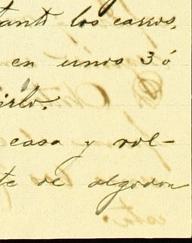 tanto los carros,
en unos 3 ó
irlo.
casa y vol-
te de algodon